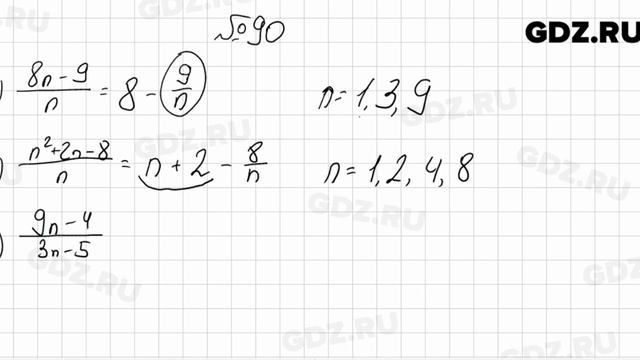 №90
GDZ.RU
) (8n-9)/n = 8 - 9/n n=1,3,9
) (n²+2n-8)/n = n+2 - 8/n n=1,2,4,8
) (9n-4)/(3n-5)
GDZ.RU
GDZ.RU
GDZ.RU
GDZ.RU
GDZ.RU
GDZ.RU
GDZ.RU